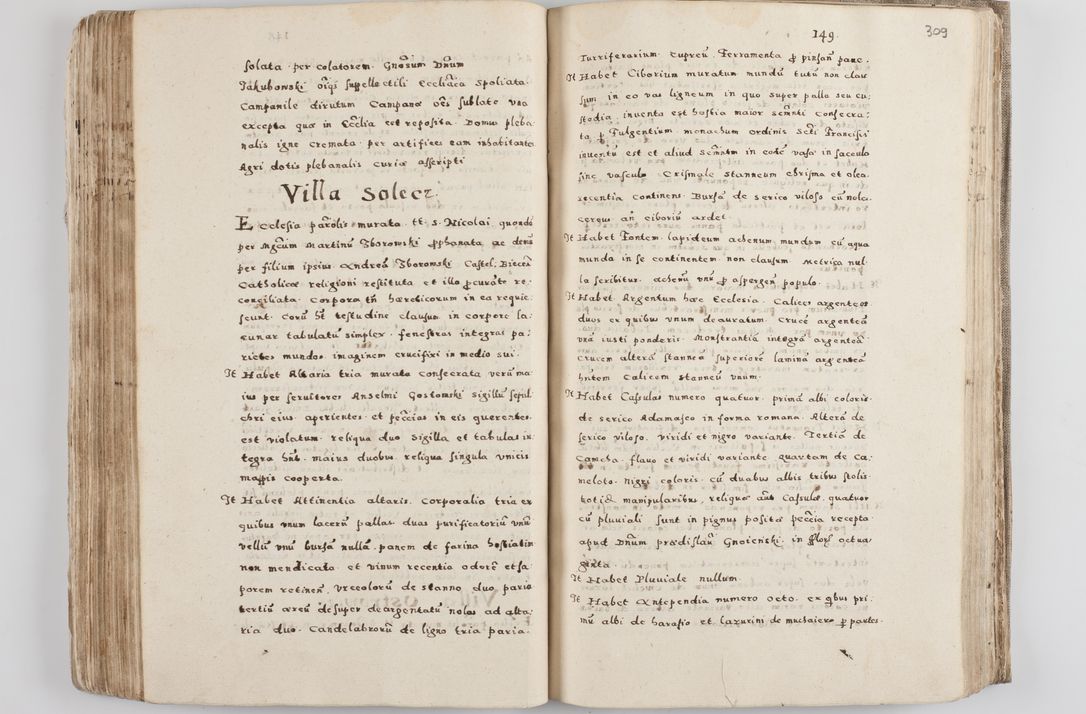 solata per colatorem Gnosum Dnum
Jakubowski oiqs suppellectili Ecclîaca spoliata
Campanile dirutum Campanæ oẽs sublatæ una
excepta quæ in Ecclîa est reposita Domus pleba,
nalis igne cremata per artifices eam inhabitantes
Agri dotis plebanalis curiæ asscripti
Villa Solecz
Ecclesia parolis murata tt. s. Nicolai quondã
per Mgcum Martinũ Zborowski prophanata ac demũ
per filium ipsius Andreã Zborowski Castel: Biecen̄
Catholicæ religioni restituta et illo procurãte re,
conciliata. Corpora tñ hæreticorum in ea requie,
scunt. Corũ ht̃ testudine clausum in corpore la,
cunar tabulatũ simplex fenestras integras pa,
rietes mundos imaginem crucifixi in medio sui.
It Habet Altaria tria murata consecrata verũ ma,
ius per servitores Anselmi Gostomski sigillũ sepul,
chri eius aperientes et peccũias in eis querentes
est violatum reliqua duo sigilla et tabulas in,
tegra hñt. maius duobus reliqua singula unicis
mappis cooperta.
It Habet Attinentia altaris. Corporalia tria ex
quibus unum lacerũ pallas duas purificatoriũ unũ
vellũ unũ bursã nullã. panem de farina hostiatim
non mendicato et vinum recentia odorẽ et sa,
porem retinen̄. Vrceolorũ de stanno duo paria
tertiũ æreũ desuper deargentatũ nolas ad alta,
ria duo. Candelabrorũ de ligno tria paria.
149.
309
Turriferarium cupreũ Ferramenta p pinsan̄ pane.
It Habet Ciborium muratum mundũ tutũ non clau
sum in eo vas ligneum in quo super palla seu cu,
stodia inventa est hostia maior semnti consecra,
ta p Fulgentium monachum ordinis Scti Francisci
inventũ est et aliud Semtm in eodẽ vase in sacculo
sine vasculo Crismale stanneum chrisma et olea
recentia continens Bursã de serico viloso cũ nola.
cereus añ ciboriũ ardet
It Habet Fontem lapideum achenum mundum cũ aqua
munda in se continentem non clausum Metrica nul
la scribitur. achenũ unũ p aspergen̄ populo.
It Habet Argentum hæc Ecclesia. Calices argenteos
duos ex quibus unum deauratum. Crucẽ argenteã
unã iusti ponderis Monstrantiã integrã argenteã
Crucem alterã stanneã superiorẽ laminã argenteã
hñtem Calicem stanneũ unum.
It Habet Casulas numero quatuor primã albi coloris
de serico Adamasco in forma romana. Alterã de
serico viloso viridi et nigro variante. Tertiã de
Camcha flavo et viridi variante quartam de Ca,
meloto nigri coloris cũ duabus albis tribus stolis
totiđ manipularibus, reliquæ aũt Casulæ quatuor
cũ pluviali sunt in pignus posita peccĩa recepta
apud Dnum prædislaũ Gnoienski in flors octua
ginta
It Habet Pluviale nullum
It Habet Antependia numero octo ex qbus pri,
mũ albi de harasio et lazurini de muchaiero p partes.